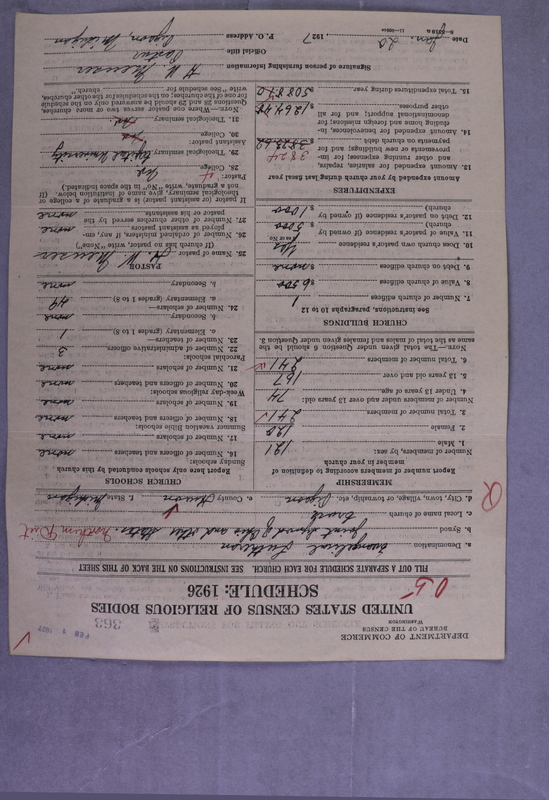 DEPARTMENT OF COMMERCE
BUREAU OF THE CENSUS
WASHINGTON
FEB 1 1927
363
UNITED STATES CENSUS OF RELIGIOUS BODIES
SCHEDULE: 1926
05
FILL OUT A SEPARATE SCHEDULE FOR EACH CHURCH. SEE INSTRUCTIONS ON THE BACK OF THIS SHEET
a. Denomination Evangelical Lutheran
b. Synod Joint Synod of Ohio and other States. Northern Dist.
c. Local name of church
d. City, town, village, or township, etc. Pigeon e. County Huron f. State Michigan
MEMBERSHIP
Report number of members according to definition of member in your church
Number of members, by sex:
1. Male 121
2. Female 120
3. Total number of members 241
Number of members under and over 13 years old:
4. Under 13 years of age 74
5. 13 years old and over 167
6. Total number of members 241
NOTE.—The total given under Question 6 should be the same as the total of males and females given under Question 3.
CHURCH BUILDINGS
See instructions, paragraphs 10 to 12
7. Number of church edifices 1
8. Value of church edifices $ 6500
9. Debt on church edifices $ none
10. Does church own pastor's residence Yes
(Yes or No)
11. Value of pastor's residence (if owned by church) $ 5000
12. Debt on pastor's residence (if owned by church) $ 1000
EXPENDITURES
Amount expended by your church during last fiscal year
13. Amount expended for salaries, repairs, and other running expenses; for improvements or new buildings; and for payments on church debt $ 3823.62
3824
14. Amount expended for benevolences, including home and foreign missions; for denominational support; and for all other purposes. $ 1264.48
15. Total expenditures during year $ 5088.10
CHURCH SCHOOLS
Report here only schools conducted by this church
Sunday schools:
16. Number of officers and teachers none
17. Number of scholars none
Summer vacation Bible schools:
18. Number of officers and teachers none
19. Number of scholars none
Week-day religious schools:
20. Number of officers and teachers none
21. Number of scholars none
Parochial schools:
22. Number of administrative officers 3
23. Number of teachers—
a. Elementary (grades 1 to 8) 1
b. Secondary none
24. Number of scholars—
a. Elementary (grades 1 to 8) 49
b. Secondary none
PASTOR
25. Name of pastor H. W.
(If church has no pastor, write "None")
26. Number of ordained ministers, if any, employed as assistant pastors none
27. Number of other churches served by the pastor or his assistants none
If pastor (or assistant pastor) is a graduate of a college or theological seminary, give name of institution below. (If not a graduate, write "No" in the space indicated.)
Pastor:
28. College
29. Theological seminary Capital University
Assistant pastor:
30. College
31. Theological seminary
NOTE.—Where one pastor serves two or more churches, Questions 25 and 28 should be answered only on the schedule for one of the churches; on the schedules for the other churches, write "See schedule for church."
Signature of person furnishing information H. W.
Official title Pastor
P. O. Address Pigeon, Michigan
Date Jan. 20, 1927